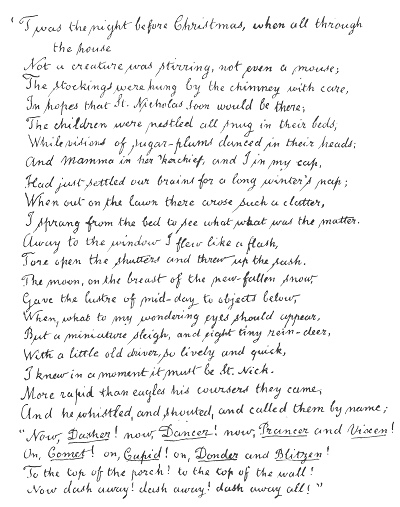 'Twas the night before Christmas, when all through
the house
Not a creature was stirring, not even a mouse;
The stockings were hung by the chimney with care,
In hopes that St. Nicholas soon would be there;
The children were nestled all snug in their beds,
While visions of sugar-plums danced in their heads;
And Mamma in her 'kerchief, and I in my cap,
Had just settled our brains for a long winter's nap;
When out on the lawn there arose such a clatter,
I sprang from the bed to see what was the matter.
Away to the window I flew like a flash,
Tore open the shutters and threw up the sash.
The moon, on the breast of the new-fallen snow,
Gave the lustre of mid-day to objects below,
When, what to my wondering eyes should appear,
But a miniature sleigh, and eight tiny rein-deer,
With a little old driver, so lively and quick,
I knew in a moment it must be St. Nick.
More rapid than eagles his coursers they came,
And he whistled, and shouted, and called them by name;
"Now, Dasher! now, Dancer! now, Prancer and Vixen!
On, Comet! on, Cupid! on, Donder and Blitzen!
To the top of the porch! to the top of the wall!
Now dash away! dash away! dash away all!"